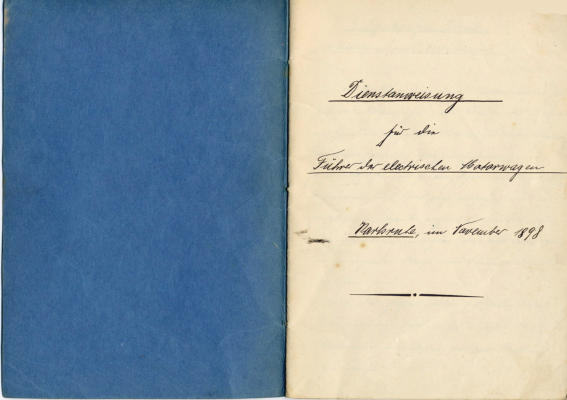 Dienstanweisung
für die
Führer der electrischen Motorwagen
Karlsruhe, im November 1898